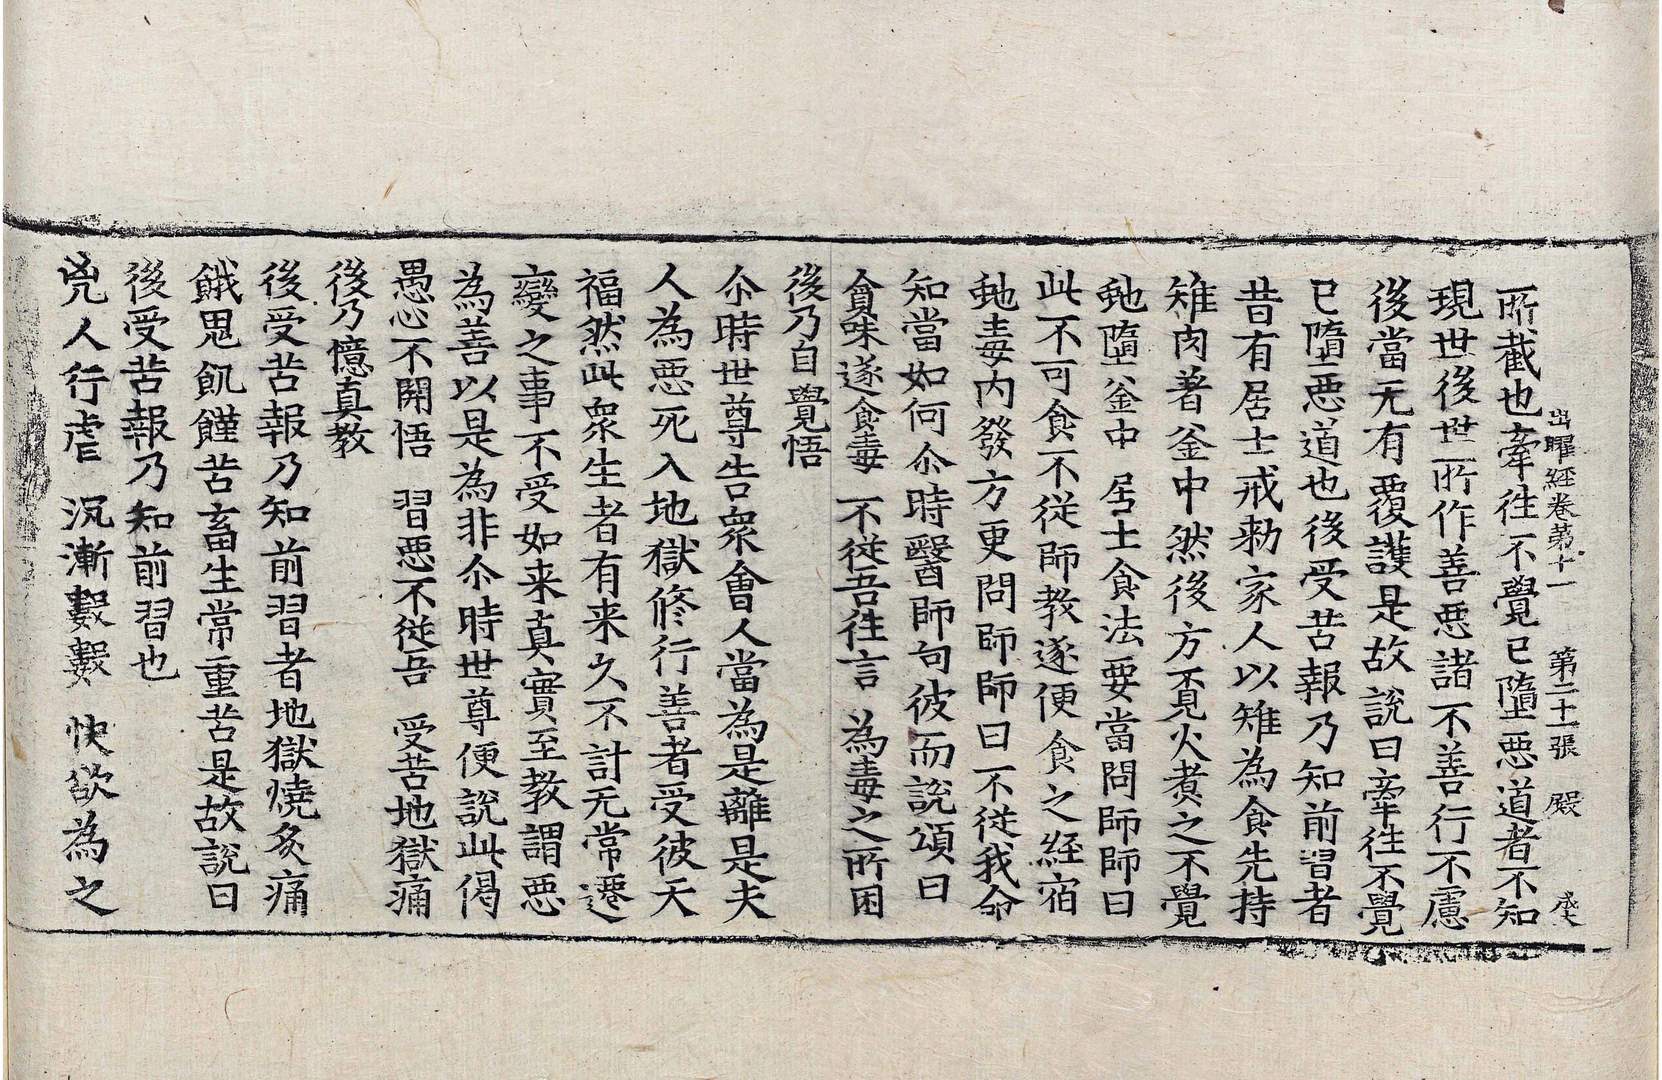 出曜經卷第十一 第二十一張 殿
所截也牽往不覺已墮惡道者不知
現世後世所作善惡諸不善行不慮
後當无有覆護是故說曰牽往不覺
已墮惡道也後受苦報乃知前習者
昔有居士戒勑家人以雉為食先持
雉肉著釜中然後方覓火煮之不覺
虵墮釜中居士食法要當問師師曰
此不可食不從師教遂便食之經宿
虵毒內發方更問師師曰不從我命
知當如何尒時醫師向彼而說頌曰
貪味遂食毒 不從吾往言 為毒之所困
後乃自覺悟
尒時世尊告衆會人當為是離是夫
人為惡死入地獄修行善者受彼天
福然此衆生者有来久不計无常遷
變之事不受如来真實至教謂惡
為善以是為非尒時世尊便說此偈
愚惑不開悟 習惡不從吾 受苦地獄痛
後乃憶真教
後受苦報乃知前習者地獄燒炙痛
餓鬼飢饉苦畜生常重苦是故說曰
後受苦報乃知前習也
兇人行虐 沉漸數數 快欲為之